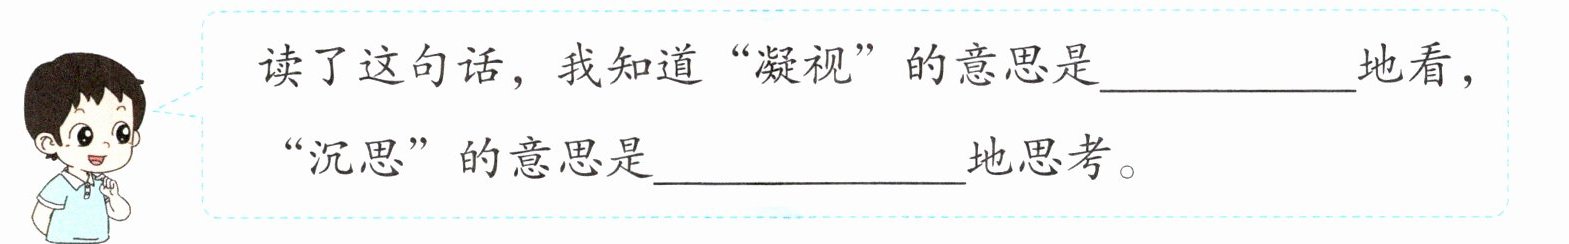 读了这句话，我知道“凝视”的意思是____________地看，
“沉思”的意思是_______________地思考。